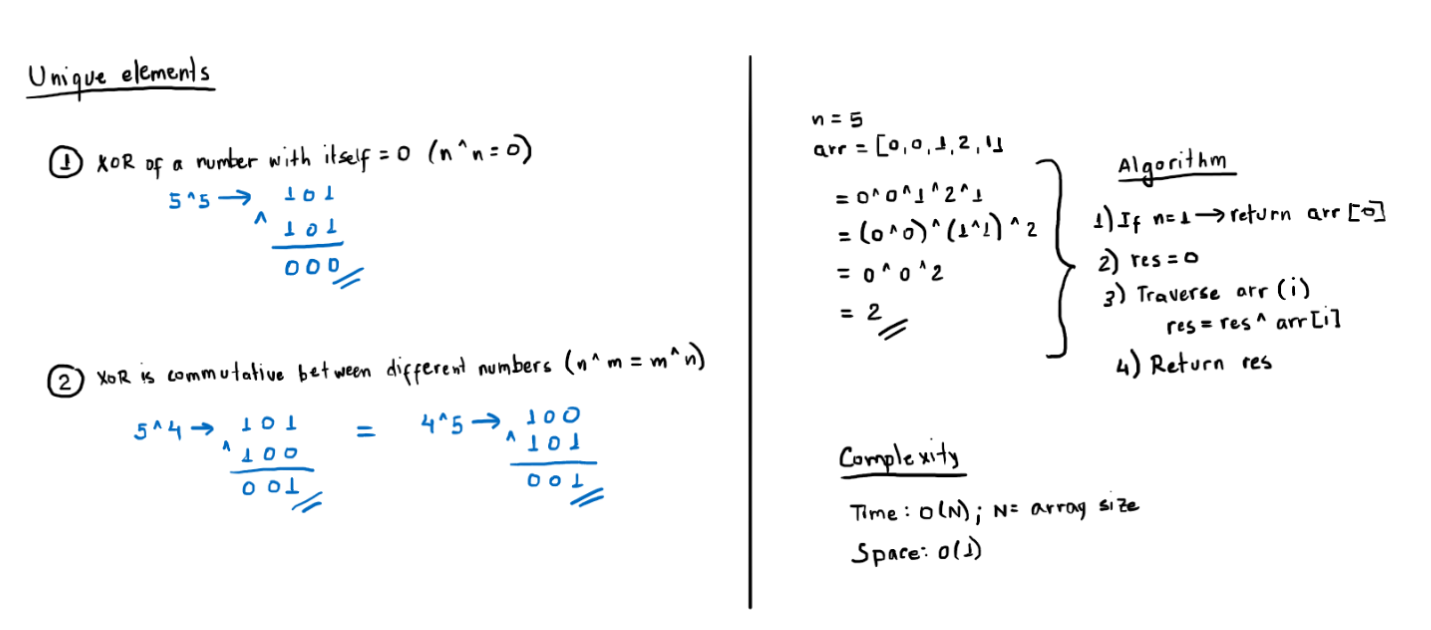 Unique elements
① XOR of a number with itself = 0 (n^n=0)
5^5 → 101
^ 101
000
② XOR is commutative between different numbers (n^m = m^n)
5^4 → 101 = 4^5 → 100
^ 100 ^ 101
001 001
n = 5
arr = [0,0,1,2,1]
= 0^0^1^2^1
= (0^0)^(1^1)^2
= 0^0^2
= 2
Algorithm
1) If n=1 → return arr[0]
2) res = 0
3) Traverse arr (i)
res = res ^ arr[i]
4) Return res
Complexity
Time: O(N); N= array size
Space: O(1)